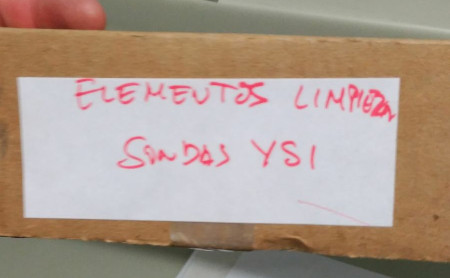 ELEMENTOS LIMPIEZA
SONDAS YSI